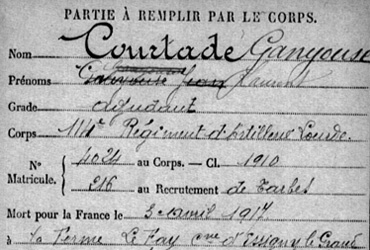 PARTIE À REMPLIR PAR LE CORPS.
Nom Courtade Ganyouse
Prénoms Jean
Grade adjudant
Corps 114e Régiment d'Artillerie Lourde.
N° Matricule. 4024 au Corps. — Cl. 1910
216 au Recrutement de Tarbes
Mort pour la France le 5 avril 1917
à La Ferme Le Fay cne d'Essigny le Grand